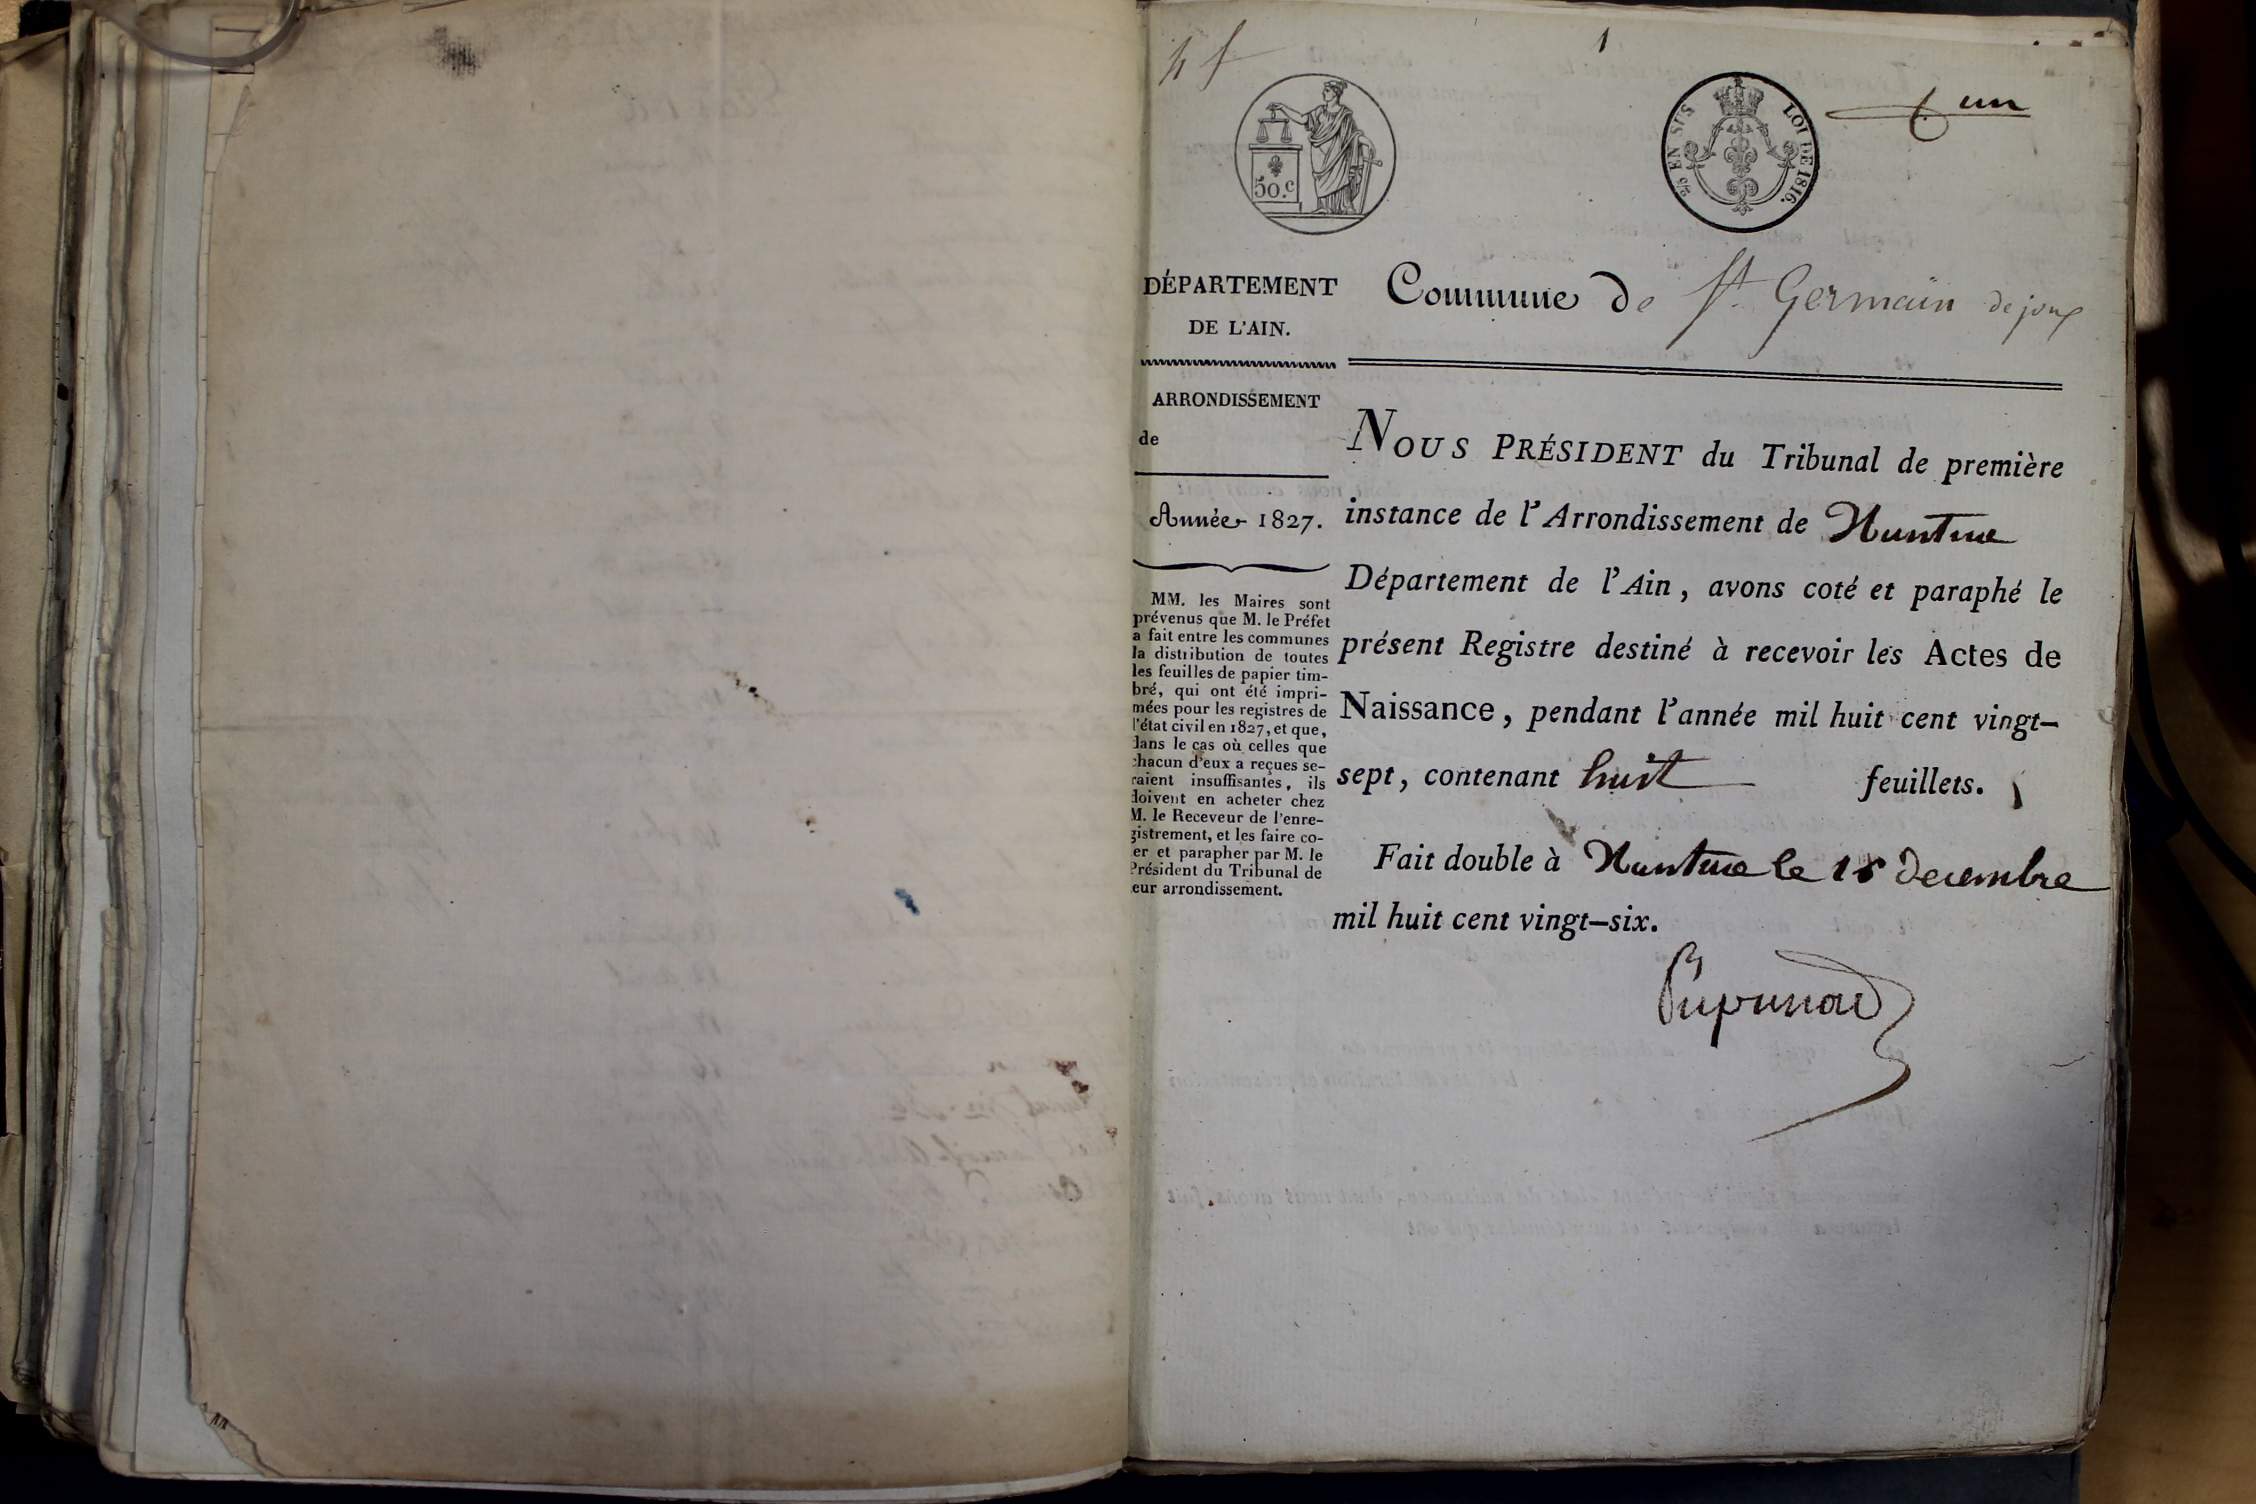 1
50.c
2/0 EN SUS
LOI DE 1816.
un
DÉPARTEMENT
DE L'AIN.
Commune de St. Germain de joux
ARRONDISSEMENT
de
Année 1827.
MM. les Maires sont
prévenus que M. le Préfet
a fait entre les communes
la distribution de toutes
les feuilles de papier tim-
bré, qui ont été impri-
mées pour les registres de
l'état civil en 1827, et que,
dans le cas où celles que
chacun d'eux a reçues se-
raient insuffisantes, ils
doivent en acheter chez
M. le Receveur de l'enre-
gistrement, et les faire co-
er et parapher par M. le
Président du Tribunal de
eur arrondissement.
NOUS PRÉSIDENT du Tribunal de première
instance de l'Arrondissement de Nantua
Département de l'Ain, avons coté et paraphé le
présent Registre destiné à recevoir les Actes de
Naissance, pendant l'année mil huit cent vingt-
sept, contenant huit feuillets.
Fait double à Nantua le decembre
mil huit cent vingt-six.